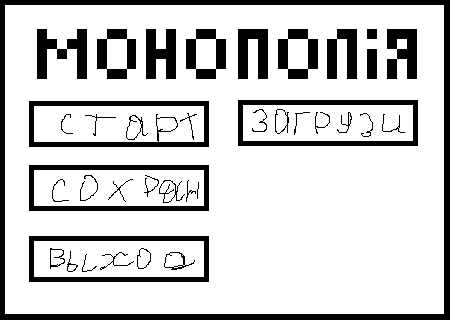 МОНОПОЛіЯ
СТАРТ ЗАГРУЗИ
СОХРАН
ВЫХОД